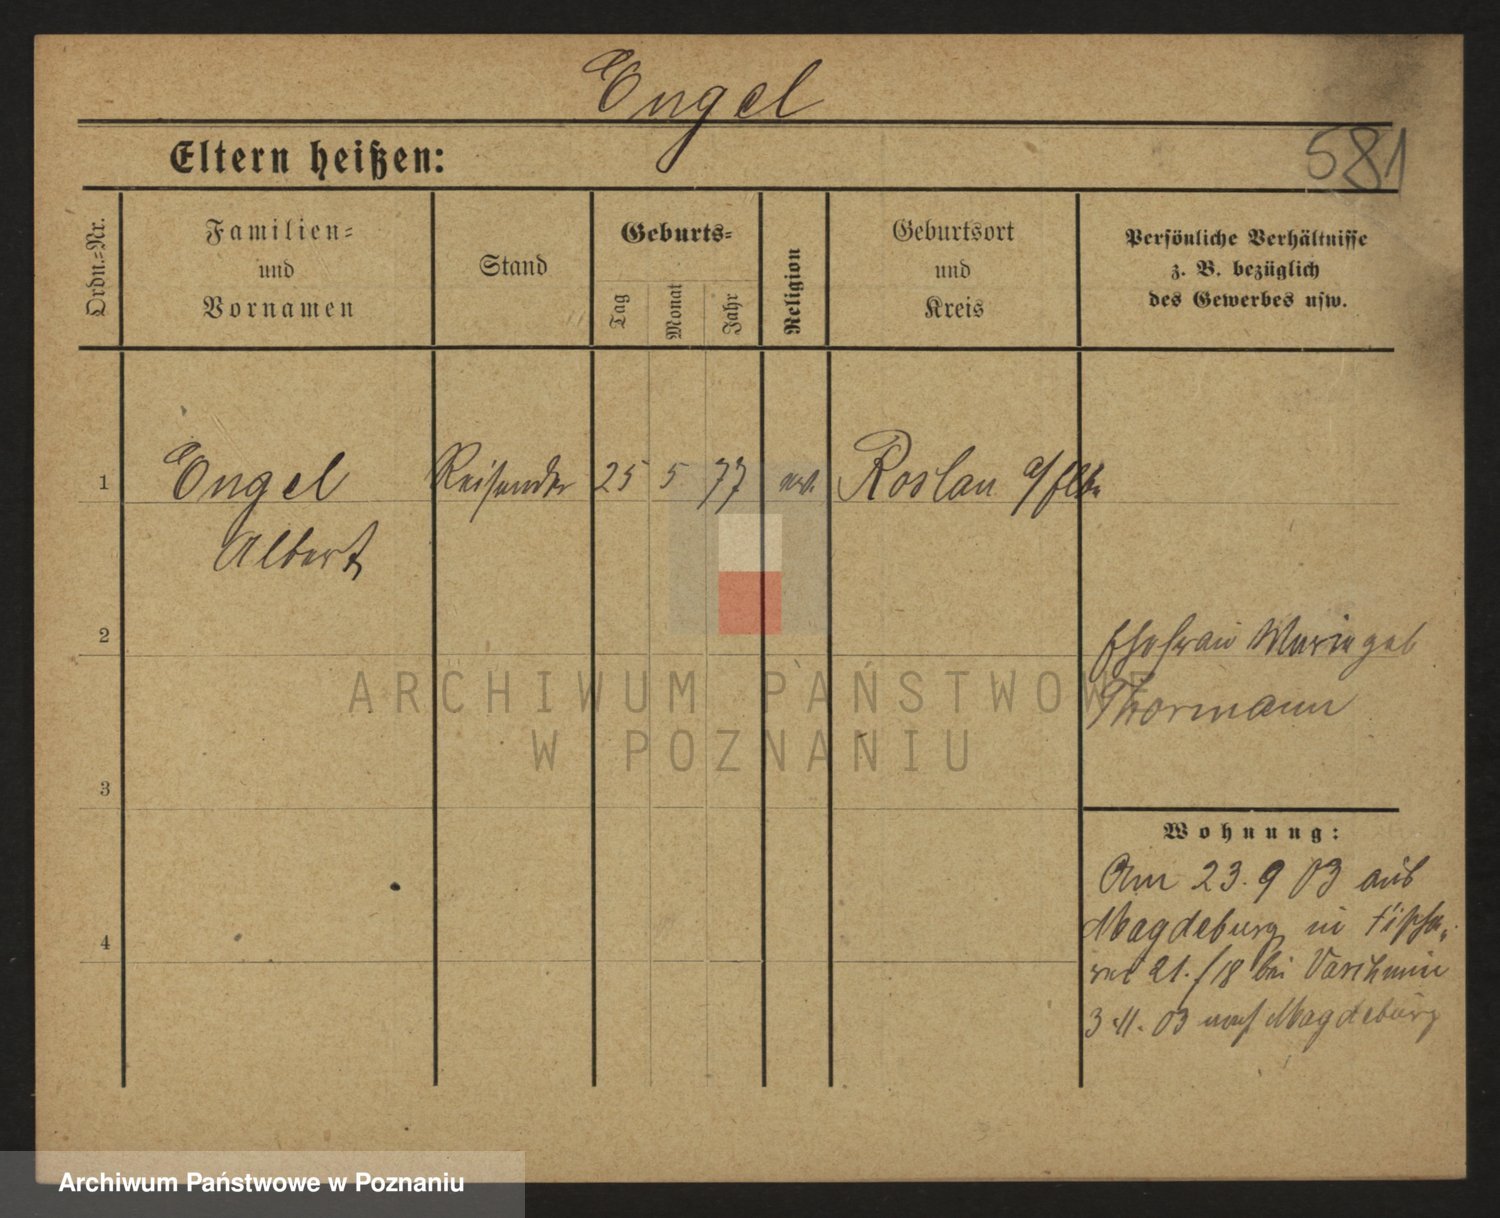 Engel
581
Eltern heißen:
Ordn.-Nr.
Familien-
und
Vornamen
Stand
Geburts-
Tag
Monat
Jahr
Religion
Geburtsort
und
Kreis
Persönliche Verhältnisse
z. B. bezüglich
des Gewerbes usw.
1 Engel Reisender 25 5 77 ev. Roslau a/Elbe
Albert
2
Ehefrau Marie geb
Thormann
3
4
Wohnung:
Am 23. 9 03 aus
Magdeburg in
21./18 bei
3.11.03 nach Magdeburg
ARCHIWUM PAŃSTWOWE
W POZNANIU
Archiwum Państwowe w Poznaniu